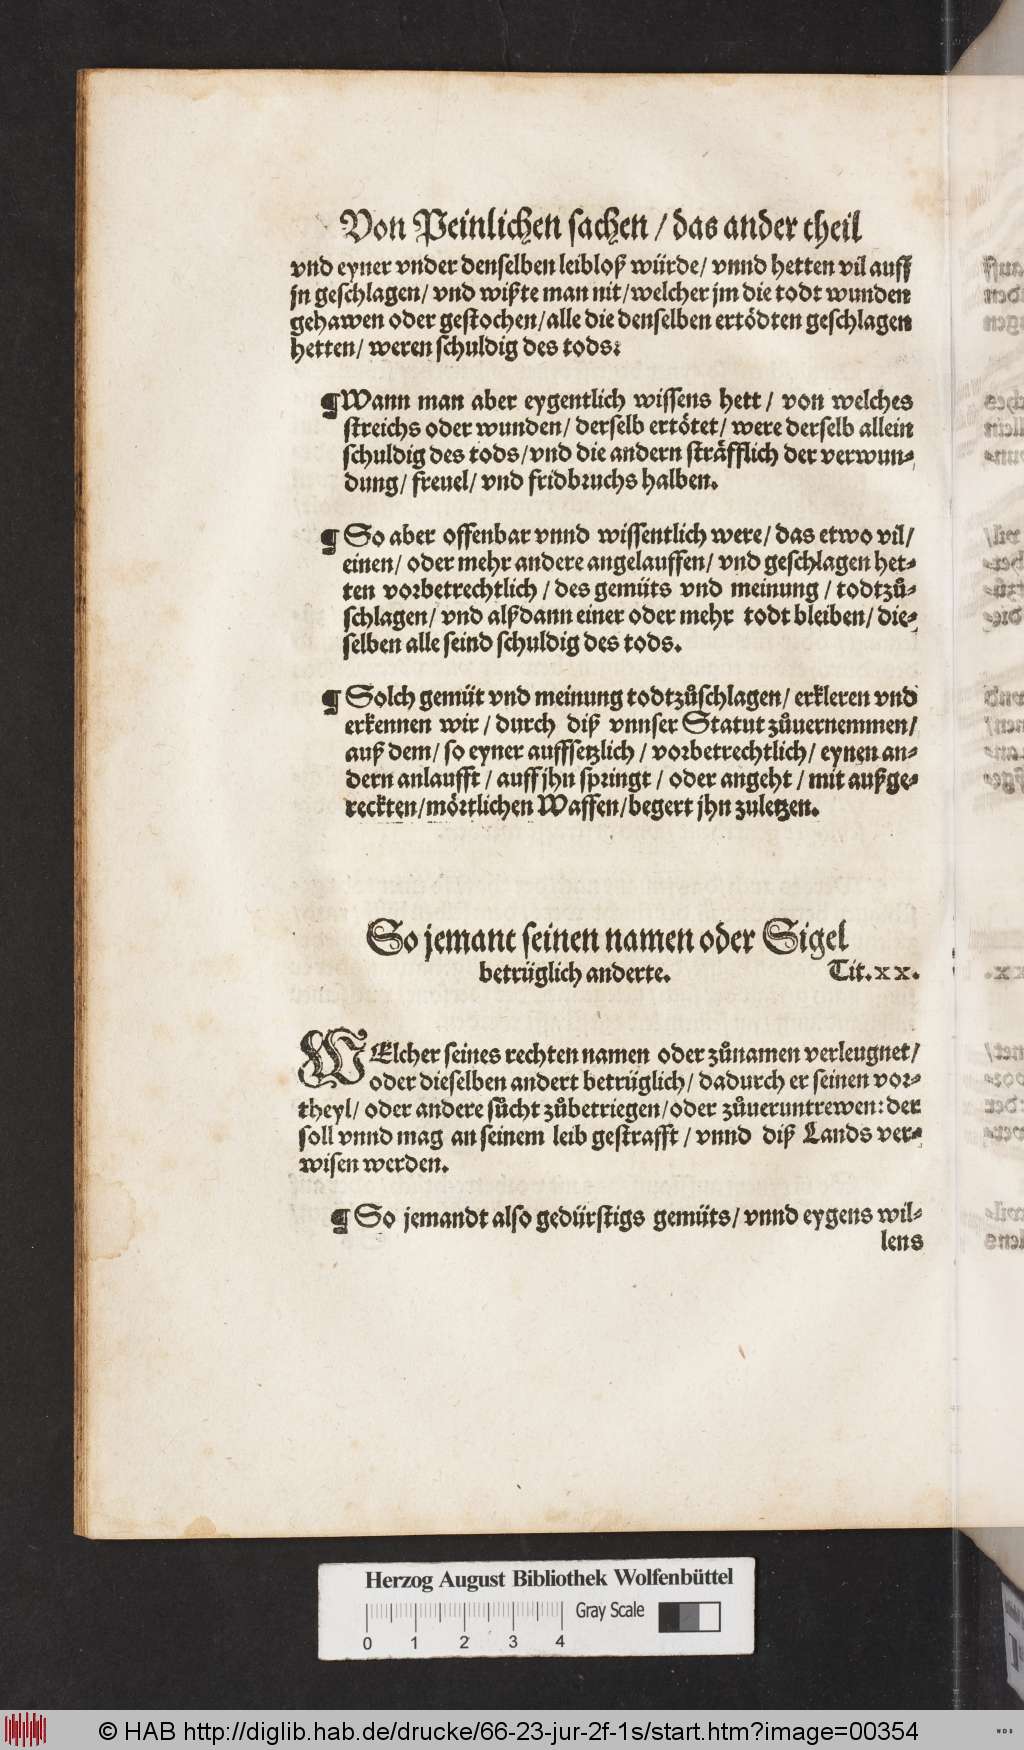 Von Peinlichen sachen / das ander theil
vnd eyner vnder denselben leibloß würde / vnnd hetten vil auff
jn geschlagen / vnd wißte man nit / welcher jm die todt wunden
gehawen oder gestochen / alle die denselben ertödten geschlagen
hetten / weren schuldig des tods:
¶ Wann man aber eygentlich wissens hett / von welches
streichs oder wunden / derselb ertötet / were derselb allein
schuldig des tods / vnd die andern sträfflich der verwun⸗
dung / freuel / vnd fridbruchs halben.
¶ So aber offenbar vnnd wissentlich were / das etwo vil /
einen / oder mehr andere angelauffen / vnd geschlagen het⸗
ten vorbetrechtlich / des gemüts vnd meinung / todtzů⸗
schlagen / vnd alßdann einer oder mehr todt bleiben / die⸗
selben alle seind schuldig des tods.
¶ Solch gemüt vnd meinung todtzůschlagen / erkleren vnd
erkennen wir / durch diß vnnser Statut zůuernemmen /
auß dem / so eyner auffsetzlich / vorbetrechtlich / eynen an⸗
dern anlaufft / auff jhn springt / oder angeht / mit außge⸗
reckten / mörtlichen Waffen / begert jhn zuletzen.
So jemant seinen namen oder Sigel
betrüglich anderte. Tit. xx.
WElcher seines rechten namen oder zůnamen verleugnet /
oder dieselben andert betrüglich / dadurch er seinen vor⸗
theyl / oder andere sůcht zůbetriegen / oder zůueruntrewen: der
soll vnnd mag an seinem leib gestrafft / vnnd diß Lands ver⸗
wisen werden.
¶ So jemandt also gedürstigs gemüts / vnnd eygens wil⸗
lens
Herzog August Bibliothek Wolfenbüttel
Gray Scale
0 1 2 3 4
© HAB http://diglib.hab.de/drucke/66-23-jur-2f-1s/start.htm?image=00354